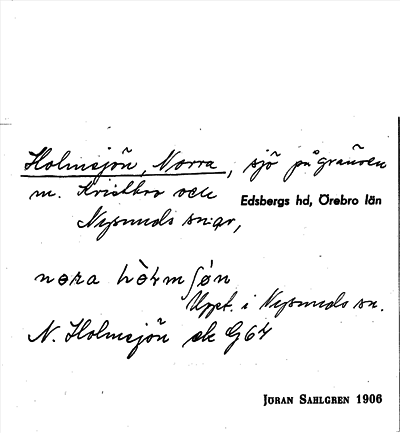 Holmsjön, Norra, sjö på gränsen
m. Kristbro och
Edsbergs hd, Örebro län
Nysunds snar,
nora hòɫmʃön
Uppt. i Nysunds sn.
N. Holmsjön ek G64
JÖRAN SAHLGREN 1906